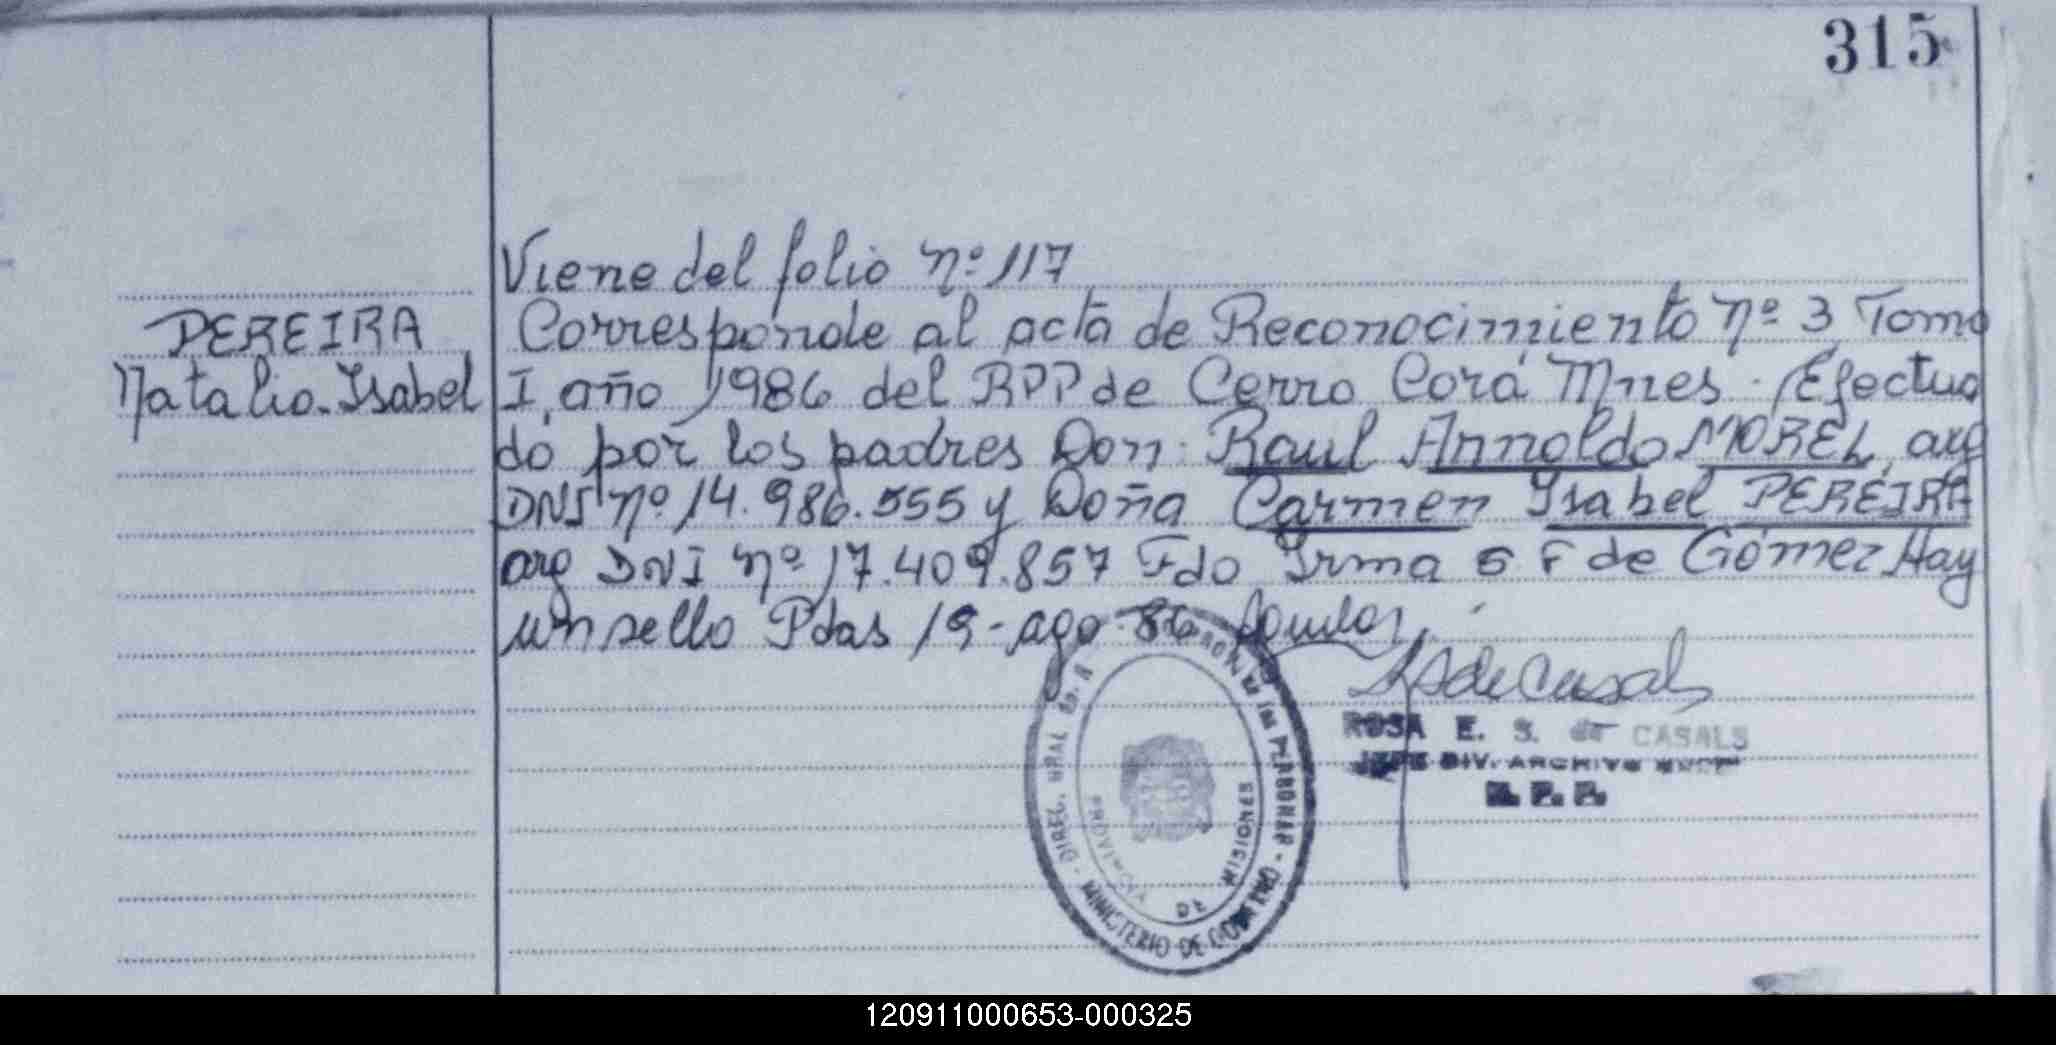 315
Viene del folio nº 117
PEREIRA
Natalia Isabel
Corresponde al acta de Reconocimiento nº 3 Tomo
I, año 1986 del RPP de Cerro Corá Mnes. Efectua
do por los padres Don: Raul Arnoldo MOREL, arg
DNI nº 14.986.555 y Doña Carmen Isabel PEREIRA
arg DNI nº 17.409.857 Fdo Irma S F de Gómez Hay
un sello Pdas 19-ago-86
ROSA E. S. de CASALS
JEFE DIV. ARCHIVO
R. P. P.
DIREC. GRAL DEL R. DE LAS PERSONAS - MINISTERIO DE GOBIERNO
PROVINCIA DE MISIONES
120911000653-000325